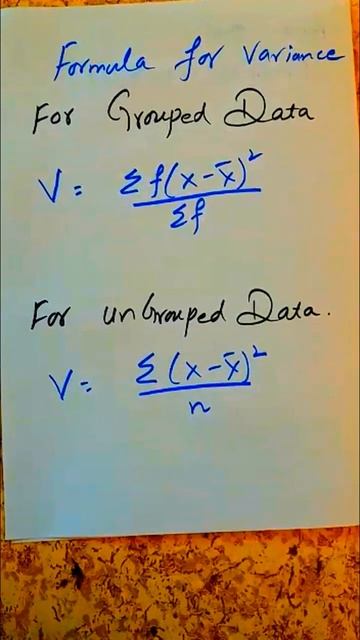 Formula for Variance
For Grouped Data
V = Σf(x-x̄)²
Σf
For unGrouped Data.
V = Σ(x-x̄)²
n